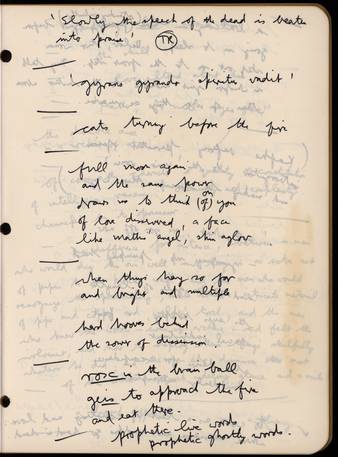 'Slowly the speech of the dead is beaten
into praise' TR
'gyrans gyrando spiritus vadit'
cats turning before the fire
full moon again
and the same power
draws us to think (of) you
on
of love discovered, a face
like angel, skin aglow
when things hang so far
and bright and multiple
hard hooves behind
the of
rose in the brain ball
to approach the fire
and eat there.
prophetic live words
prophetic ghostly words.